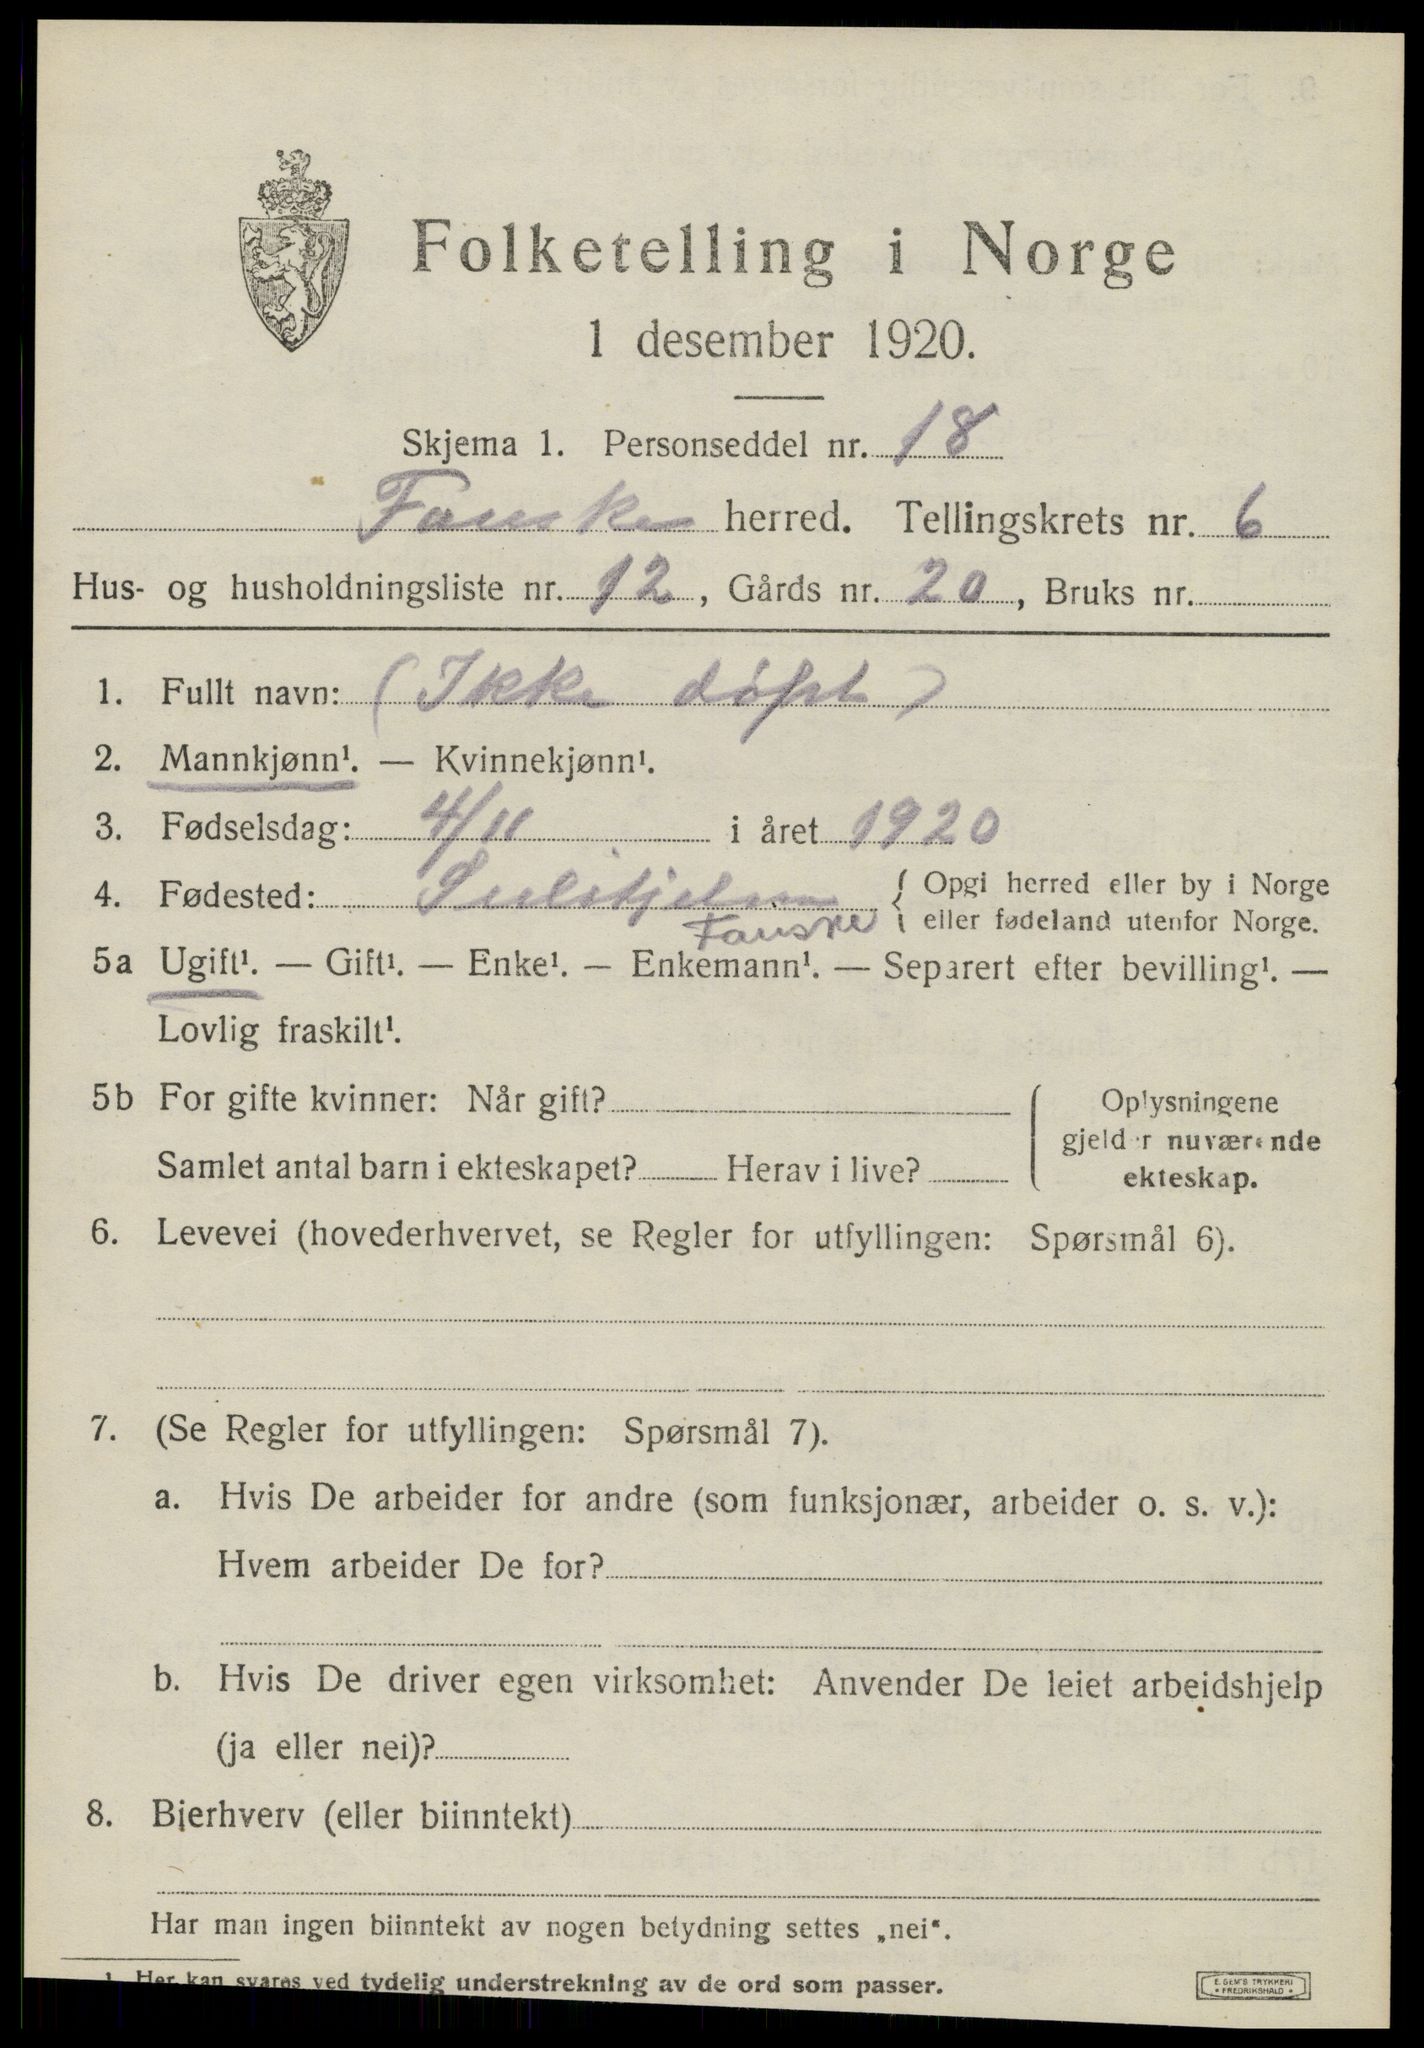 Folketelling i Norge
1 desember 1920.
Skjema 1. Personseddel nr. 18
Fauske herred. Tellingskrets nr. 6
Hus- og husholdningsliste nr. 12, Gårds nr. 20, Bruks nr.
1. Fullt navn: (Ikke døpt)
2. Mannkjønn¹. — Kvinnekjønn¹.
3. Fødselsdag: 4/11 i året 1920
4. Fødested: Sulitjelma { Opgi herred eller by i Norge
Fauske eller fødeland utenfor Norge.
5a Ugift¹. — Gift¹. — Enke¹. — Enkemann¹. — Separert efter bevilling¹. —
Lovlig fraskilt¹.
5b For gifte kvinner: Når gift? Oplysningene
gjelder nuværende
Samlet antal barn i ekteskapet? Herav i live? ekteskap.
6. Levevei (hovederhvervet, se Regler for utfyllingen: Spørsmål 6).
7. (Se Regler for utfyllingen: Spørsmål 7).
a. Hvis De arbeider for andre (som funksjonær, arbeider o. s. v.):
Hvem arbeider De for?
b. Hvis De driver egen virksomhet: Anvender De leiet arbeidshjelp
(ja eller nei)?
8. Bierhverv (eller biinntekt)
Har man ingen biinntekt av nogen betydning settes „nei“.
1 Her kan svares ved tydelig understrekning av de ord som passer.
E. SEM'S TRYKKERI
• FREDRIKSHALD •